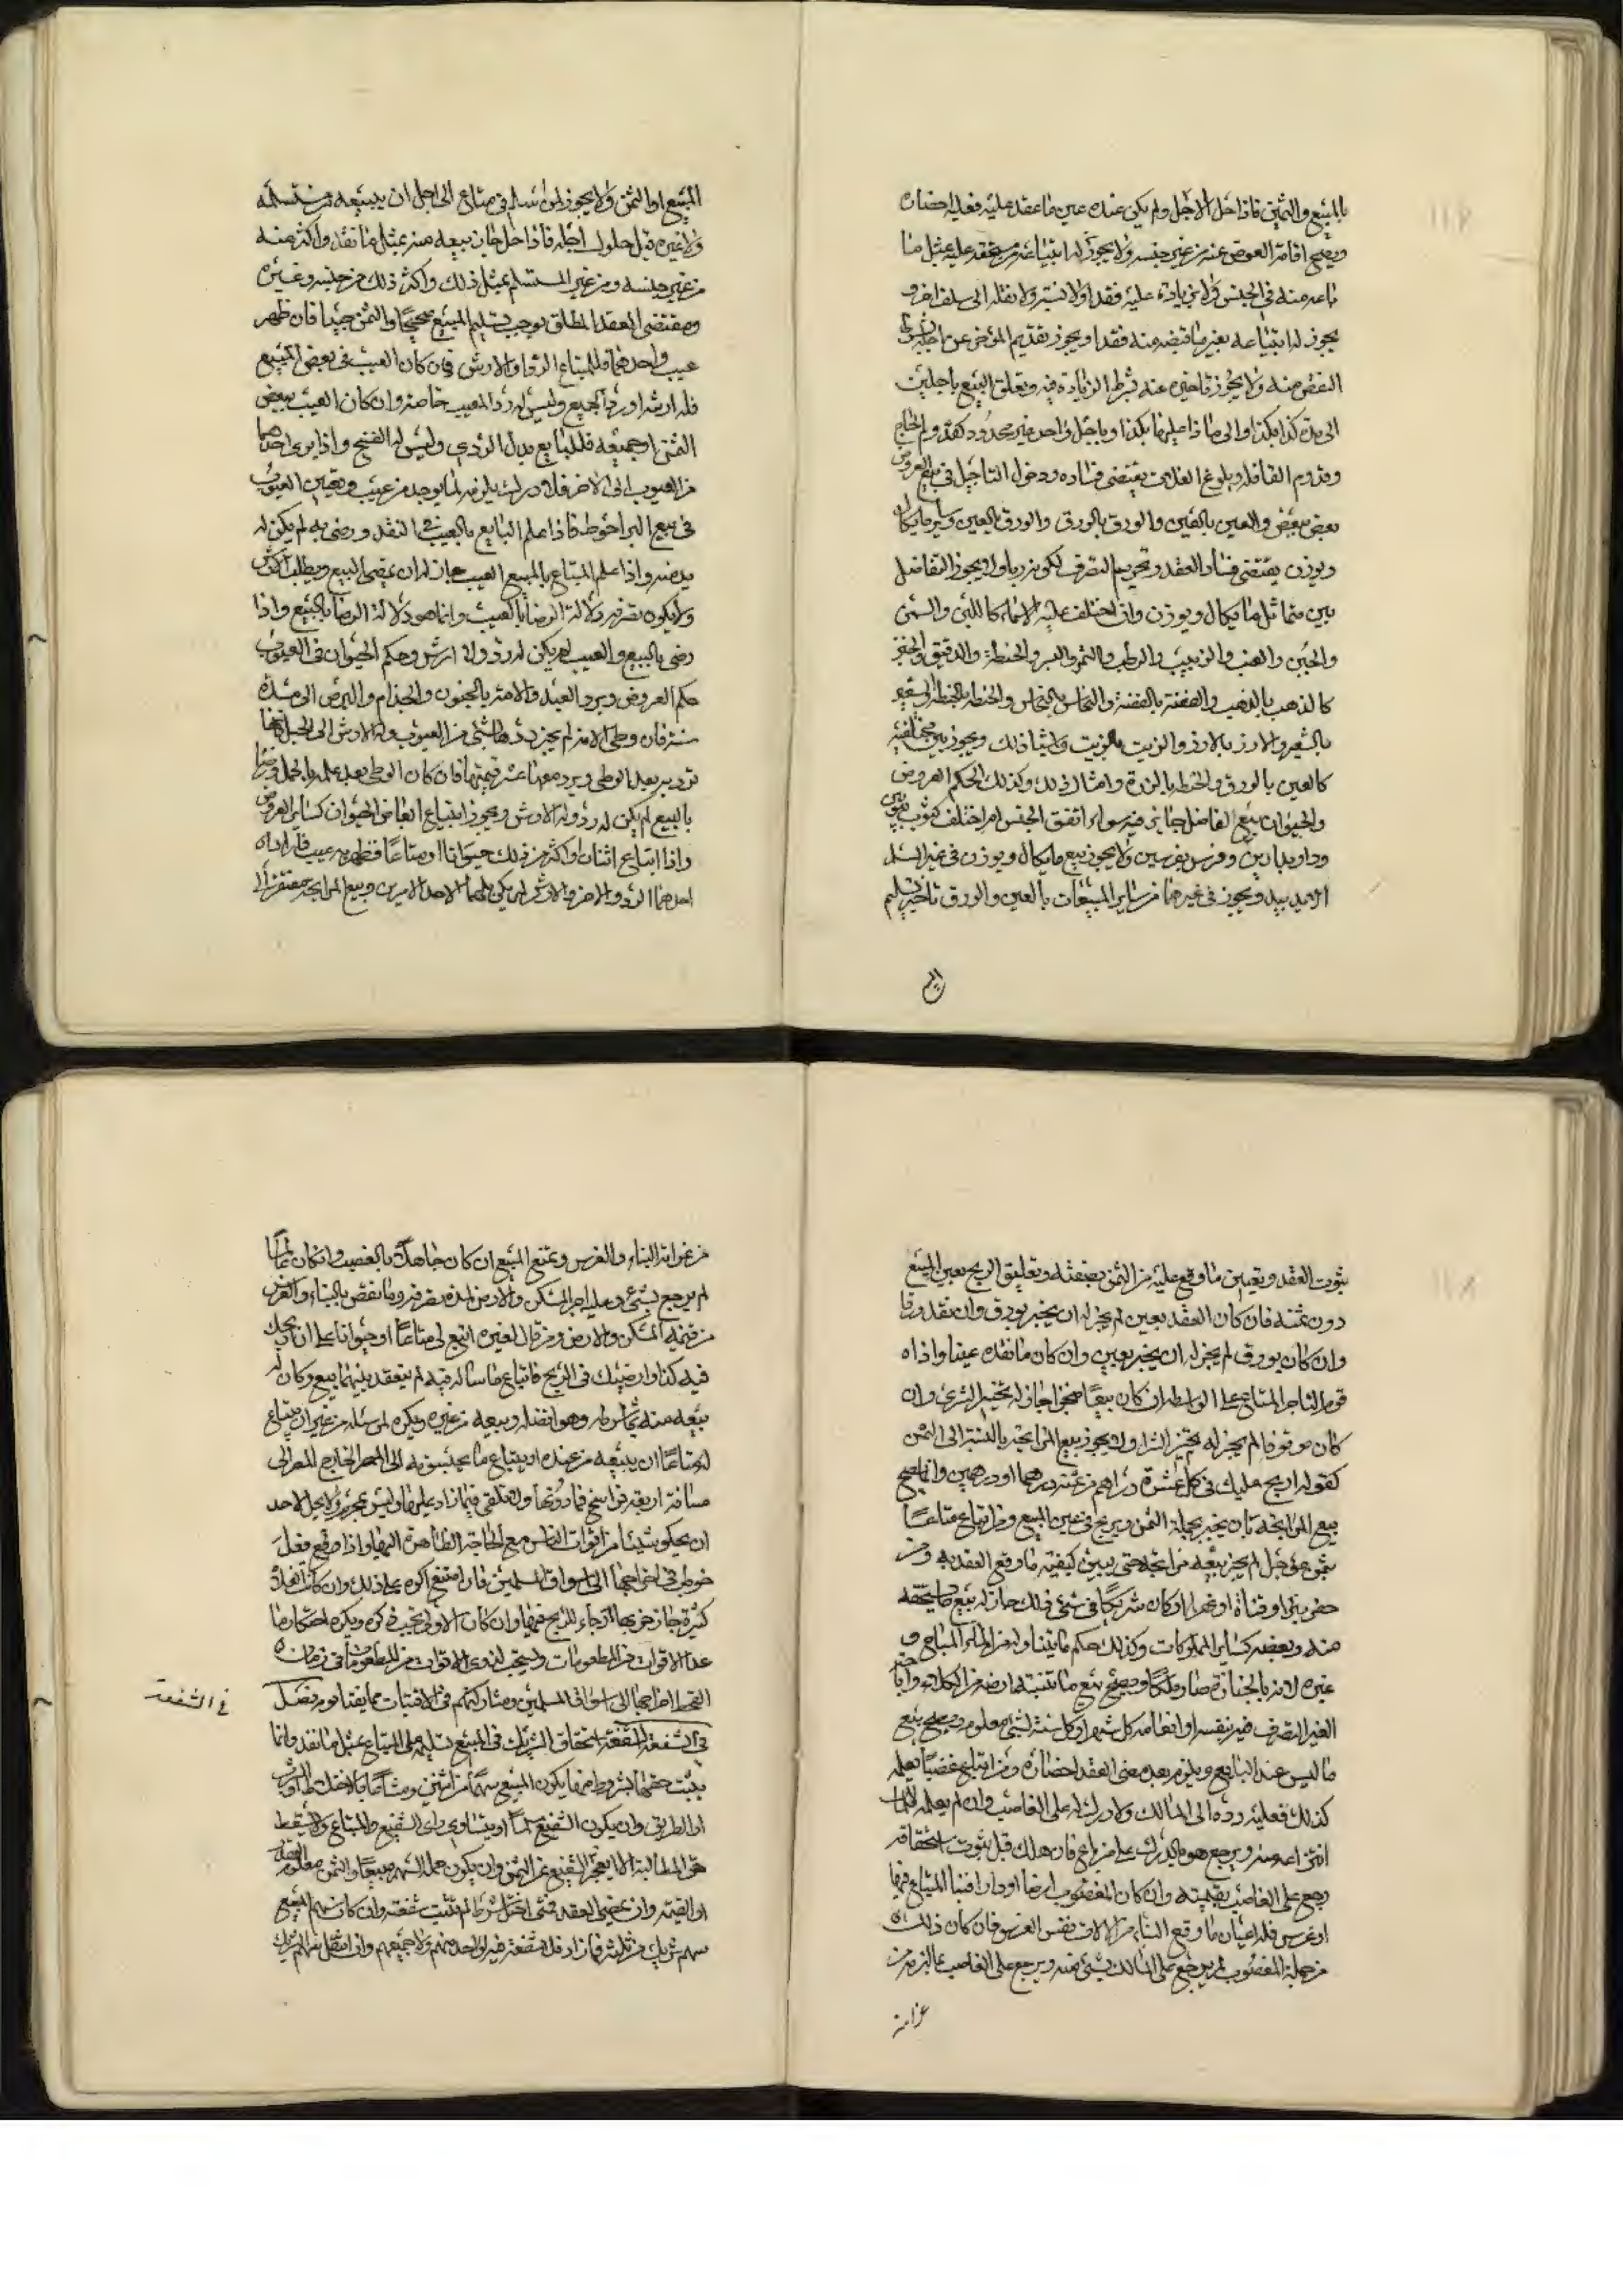 بالمبيع والثمن فاذا حل الاجل ولم يكن عنده عين ما عقد عليه فعليه احضاره
ويصح اقامة العوض عنه من غير جنسه ولا يجوز له ابتياعه من عقد عليه بمثل ما
باعه منه في الجنس ولا بزيادة عليه نقدا ولا نسية ولا نقله الى سلف اخر و
يجوز له ابتياعه بغير ما قبضه منه نقدا ويجوز تقديم المؤخر عن اجله بشرط
النقص منه ولا يجوز تاخيره عنه بشرط الزيادة فيه وتعلق البيع باجلين
الى مدة كذا بكذا والى ما زاد عليها بكذا وباجل واحد غير محدود كقدوم الحاج
وقدوم القافلة وبلوغ الغلات يقتضي فساده ودخول التاجيل في بيع العروض
بعض ببعض والعين بالعين والورق بالورق والورق بالعين وساير ما يكال
ويوزن يقتضي فساد العقد وتحريم التصرف لكونه ربا ولا يجوز التفاضل
بين متماثل ما يكال ويوزن وان اختلف عليه الاسماء كاللبن والسمن
والجبن والعنب والزبيب والرطب والتمر والبسر والحنطة والدقيق والخبز
كالذهب بالذهب والفضة بالفضة والنحاس بالنحاس والحنطة بالحنطة والشعير
بالشعير والارز بالارز والزيت بالزيت وامثال ذلك ويجوز بين مختلفيه
كالعين بالورق والحنطة بالذرة وامثال ذلك وكذلك الحكم العروض
والحيوان بيع التفاضل جايز فيه سواء اتفق الجنس ام اختلف كثوب بثوبين
ودار بدارين وفرس بفرسين ولا يجوز بيع ما يكال ويوزن في غير السلم
الا يد بيد ويجوز في غيرهما من ساير المبيعات بالعين والورق تاخير تسليم
المبيع او الثمن ولا يجوز لمن اسلم في متاع الى اجل ان يبيعه من مستسلمه
ولا غيره قبل حلول اجله فاذا حل جاز بيعه منه بمثل ما نقد واكثر منه
من غير جنسه ومن غير المستسلم بمثل ذلك واكثر ذلك من جنسه وغيره
ومقتضى العقد المطلق يوجب تسليم المبيع صحيحا والثمن جيدا فان ظهر
عيب واحدهما فللمبتاع الرد او الارش فان كان العيب في بعض المبيع
فله ارشه او رد الجميع وليس له رد المعيب خاصة وان كان العيب ببعض
الثمن او جميعه فللبايع بدل الردي وليس له الفسخ واذا برى احدهما
من العيوب الى الاخر فلا درك يلزمه لما يوجد من عيب وتعيين العيوب
في بيع البرا احوط فاذا علم البايع بالعيب في النقد ورضي به لم يكن له
بدله واذا علم المبتاع بالمبيع العيب جاز له ان يمضي البيع ويطلب الارش
ولا يكون تصرفه دلالة الرضا بالعيب وانما هو دلالة الرضا بالبيع واذا
رضي بالبيع والعيب لم يكن له رد ولا ارش وحكم الحيوان في العيوب
حكم العروض ويرد العبد والامة بالجنون والجذام والبرص الى مدة
سنة فان وطى الامة لم يجز ردها بشئ من العيوب وله الارش الا الحبل فانها
ترد به بعد الوطي ويرد معها عشر قيمتها فان كان الوطي بعد علمه بالحمل ورضا
بالبيع لم يكن له رد وله الارش ويجوز ابتياع ابعاض الحيوان كساير العروض
واذا ابتاع اثنان او اكثر من ذلك حيوانا او متاعا فظهر به عيب فاراد
احدهما الرد والاخر الارش لم يكن لهما الا احد الامرين وبيع المرابحة مفتقر الى
ثبوت العقد وتعيين ما وقع عليه من الثمن بصفته وتعليق الربح بعين المبيع
دون ثمنه فان كان العقد بعين لم يجز له ان يخبر بورق وان نقد ورقا
وان كان بورق لم يجز له ان يخبر بعين وان كان ما نقده عينا واذا
قوم التاجر المتاع على الواسطة ان كان بيعا صحيحا جاز له تخبير الشرى وان
كان موقوفا لم يجز له تخبير الشرا ولا يجوز بيع المرابحة بالنسبة الى الثمن
كقوله اربح عليك في كل عشرة دراهم من ثمنه درهما او درهمين وانما يصح
بيع المرابحة بان يخبر بجملة الثمن ويربح في عين المبيع ومن ابتاع متاعا
بثمن مؤجل لم يجز بيعه مرابحة حتى يبين كيفية ما وقع العقد به ومن
حفر بئرا او قناة او نهرا او كان شريكا في شئ من ذلك جاز له بيع ما يستحقه
منه وبعضه كساير المملوكات وكذلك حكم ما يتناوله من الماء المباح و
غيره لانه بالحيازة صار ملكا ويصح بيع ما تنبته ارضه من الكلاء
الغير التصرف فيه بنفسه او انعامه كل شهر او كل سنة بشئ معلوم ويصح بيع
ما ليس عند البايع ويلزمه بعد مضي العقد احضاره ومن ابتاع غصبا يعلمه
كذلك فعليه رده الى المالك ولا درك له على الغاصب وان لم يعلمه فللمالك
انتزاعه منه ويرجع هو بالدرك على من باع فان هلك قبل ثبوت استحقاقه
رجع على الغاصب بقيمته وان كان المغصوب ارضا او دارا فبنا المبتاع فيها
او غرس فله اعيان ما وقع البناء من الالات نفس الغرس فان كان ذلك
من جملة المغصوب لم يرجع على المالك بشئ منه ويرجع على الغاصب بما لزمه من
غرامة
من غرامة البناء والغرس ومنع المبيع ان كان جاهلا بالغصب وان كان عالما
لم يرجع بشئ وعليه اجر المسكن والارض لمدة تصرفه وما نقص بالبناء والغرس
من قيمة المسكن والارض ومن قال لغيره ابتع لي متاعا او حيوانا على ان اربحك
فيه كذا وارضيتك في الربح فابتاع ما ساله فيه لم ينعقد بينهما بيع وكان له
بيعه منه بما شرط وهو افضل وبيعه من غيره ويكره لمن سئله من غير ان يبتاع
له متاعا ان يبيعه من عنده او يبتاع ما يجتنسوق به الى المصر الخارج المصر الى
مسافة اربعة فراسخ فما دونها ولا تلقي فيما زاد عليها وليس بمحرم ولا يحل لاحد
ان يحكر شيئا من اقوات الناس مع الحاجة الظاهرة اليها واذا وقع فعل
خوطب في اخراجها الى اسواق المسلمين فان امتنع اكره على ذلك وان كانت الغلات
كثيرة جاز خزنها ارجاء للربح فيها وان كان الاولى تجنب ذلك ويكره احتكار ما
عدا الاقوات من المطعومات ويستحب لذوي الاقوات من المطعومات في زمان
القحط اخراجها الى اسواق المسلمين ومشاركتهم في الاقتيات مما يقتاتونه فصل
في الشفعة
في الشفعة الشفعة استحقاق الشريك في المبيع تسليمه على المبتاع بمثل ما نقد وانما
يثبت حقها بشروط منها يكون المبيع سهما من اثنين ومشاعا بالاختلاط او الشرب
او الطريق وان يكون الشفيع مسلما او يتساوى راي الشفيع والمبتاع ولا يسقط
حق المطالبة ولا يعجز الشفيع عن الثمن وان يكون حمل السهم مبيعا والثمن معلوم
او القيمة وان يمضي العقد فمتى اختل شرط لم تثبت شفعة وان كان سهم المبيع
سهم شريك من ثلثة فما زاد فلا شفعة فيه لواحد منهم ولا جميعهم وان انتقل سهم الشريك